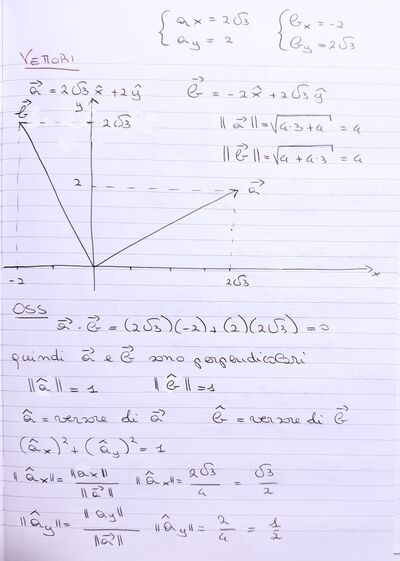 { ax = 2√3 { bx = -2
{ ay = 2 { by = 2√3
VETTORI
a⃗ = 2√3 x̂ + 2ŷ b⃗ = -2x̂ + 2√3 ŷ
y
b⃗ 2√3 ‖a⃗‖ = √(4·3+4) = 4
‖b⃗‖ = √(4+4·3) = 4
2 a⃗
-2 2√3 x
OSS
a⃗ · b⃗ = (2√3)(-2) + (2)(2√3) = 0
quindi a⃗ e b⃗ sono perpendicolari
‖â‖ = 1 ‖b̂‖ = 1
â = versore di a⃗ b̂ = versore di b⃗
(âx)² + (ây)² = 1
‖âx‖ = ‖ax‖/‖a⃗‖ ‖âx‖ = 2√3/4 = √3/2
‖ây‖ = ‖ay‖/‖a⃗‖ ‖ây‖ = 2/4 = 1/2